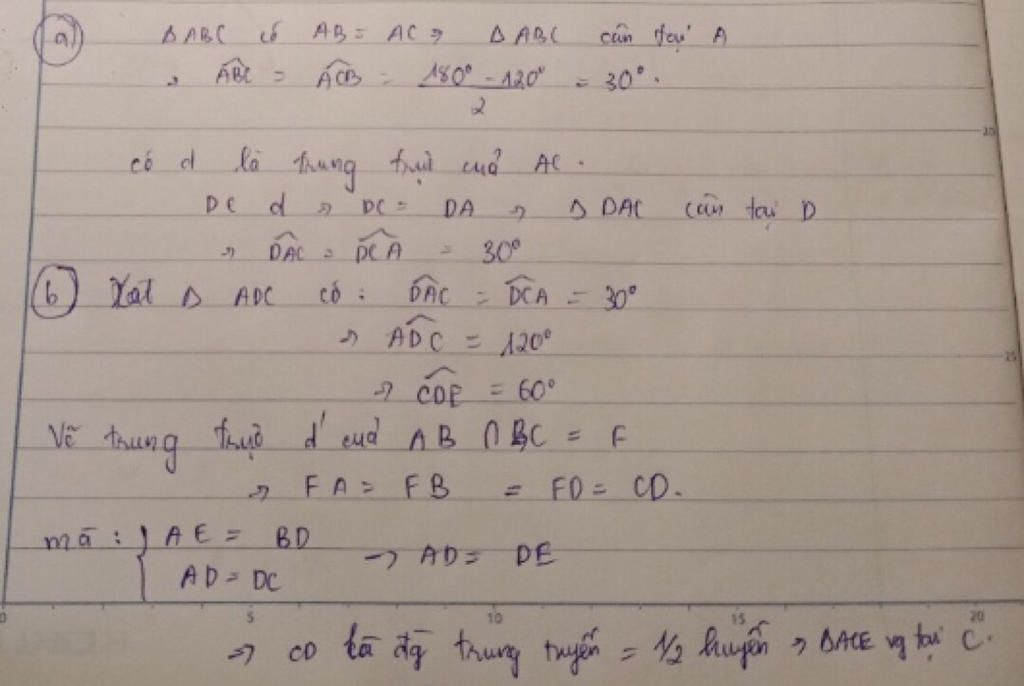 a) Δ ABC có AB = AC ⇒ Δ ABC cân tại A
⇒ \widehat{ABC} = \widehat{ACB} = \frac{180° - 120°}{2} = 30°.
20
có d là trung trực cuả AC.
D ∈ d ⇒ DC = DA ⇒ Δ DAC cân tại D
⇒ \widehat{DAC} = \widehat{DCA} = 30°
b) Xét Δ ADC có : \widehat{DAC} = \widehat{DCA} = 30°
⇒ \widehat{ADC} = 120°
25
⇒ \widehat{CDE} = 60°
Vẽ trung trực d' cuả AB ∩ BC = F
⇒ FA = FB = FD = CD.
mà : { AE = BD
AD = DC → AD = DE
0 5 10 15 20
⇒ CD là đg trung tuyến = 1/2 huyền ⇒ ΔACE vg tại C.